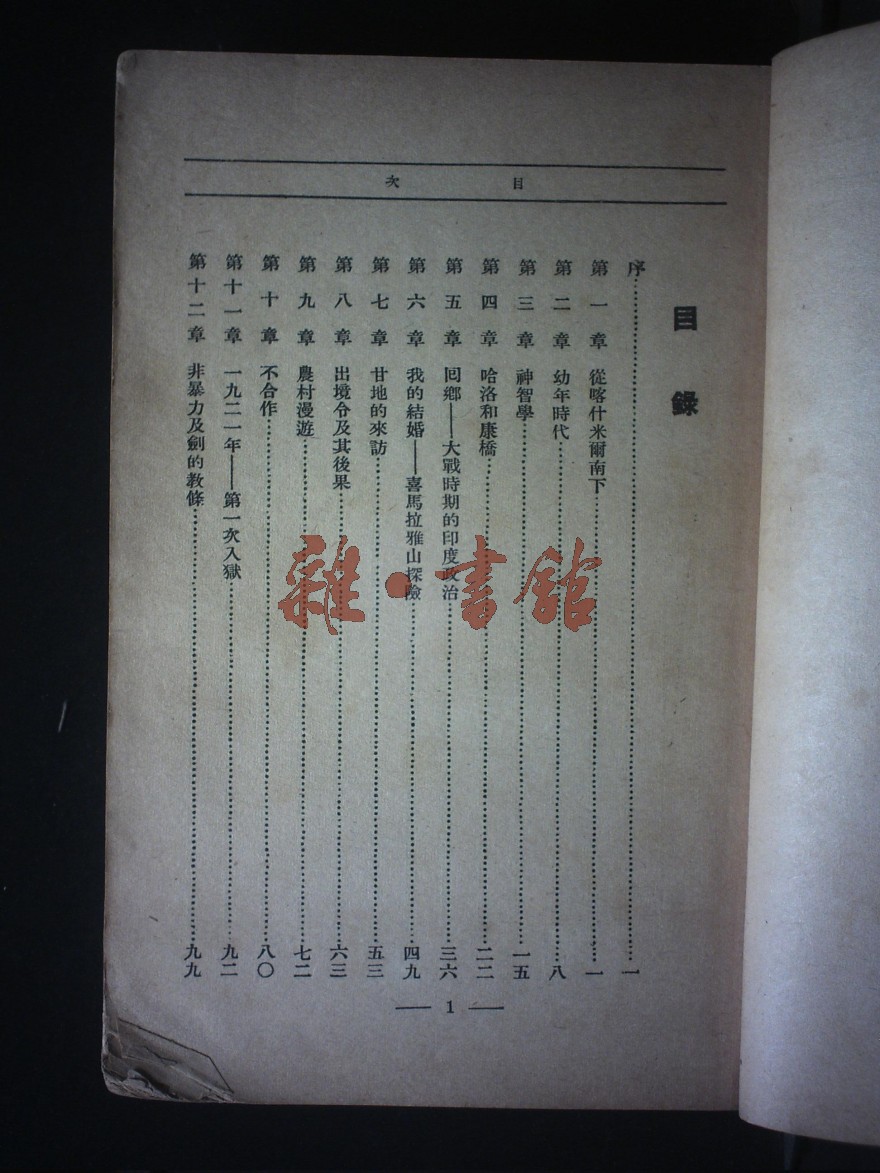 目次
目錄
序……一
第一章 從喀什米爾南下……一
第二章 幼年時代……八
第三章 神智學……一五
第四章 哈洛和康橋……二二
第五章 囘鄉——大戰時期的印度政治……三六
第六章 我的結婚——喜馬拉雅山探險……四九
第七章 甘地的來訪……五三
第八章 出境令及其後果……六三
第九章 農村漫遊……七二
第十章 不合作……八〇
第十一章 一九二一年——第一次入獄……九二
第十二章 非暴力及劍的教條……九九
— 1 —
雜·書館